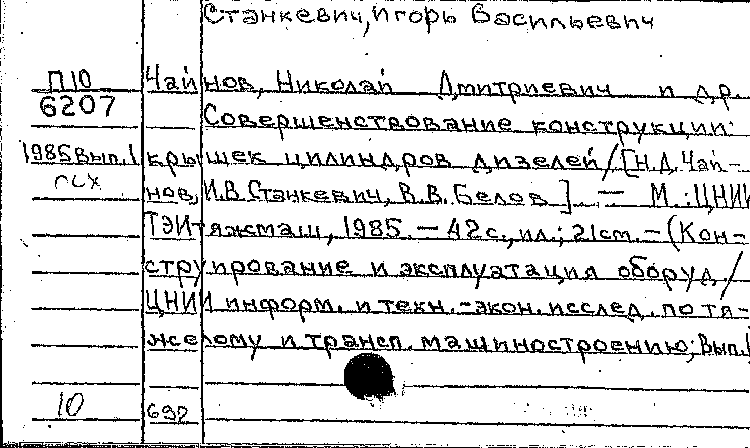 Станкевич, Игорь Васильевич
П10 Чайнов, Николай Дмитриевич и др.
6207 Совершенствование конструкции
1985 Вып.1 крышек цилиндров дизелей / [Н.Д. Чай-
гсх нов, И.В. Станкевич, В.В. Белов]. — М.: ЦНИИ
ТЭИтяжмаш, 1985. — 42 с., ил.; 21 см. — (Кон-
струирование и эксплуатация оборуд. /
ЦНИИ информ. и техн.-экон. исслед. по тя-
желому и трансп. машиностроению; Вып. 1
10